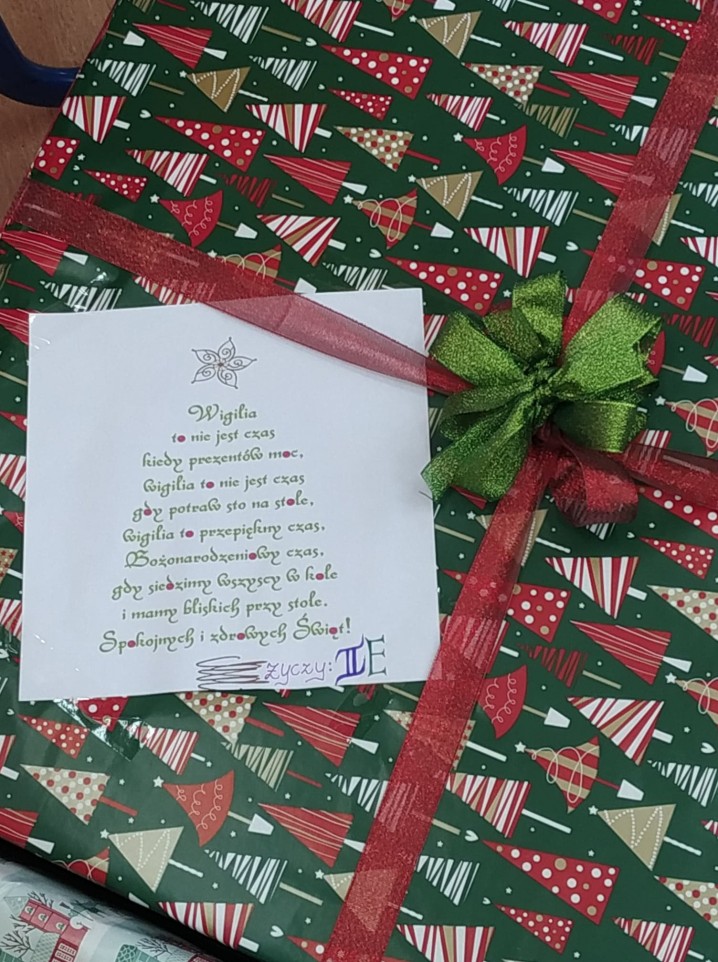 Wigilia
to nie jest czas
kiedy prezentów moc,
wigilia to nie jest czas
gdy potraw sto na stole,
wigilia to przepiękny czas,
Bożonarodzeniowy czas,
gdy siedzimy wszyscy w kole
i mamy bliskich przy stole.
Spokojnych i zdrowych Świąt!
życzy: IE